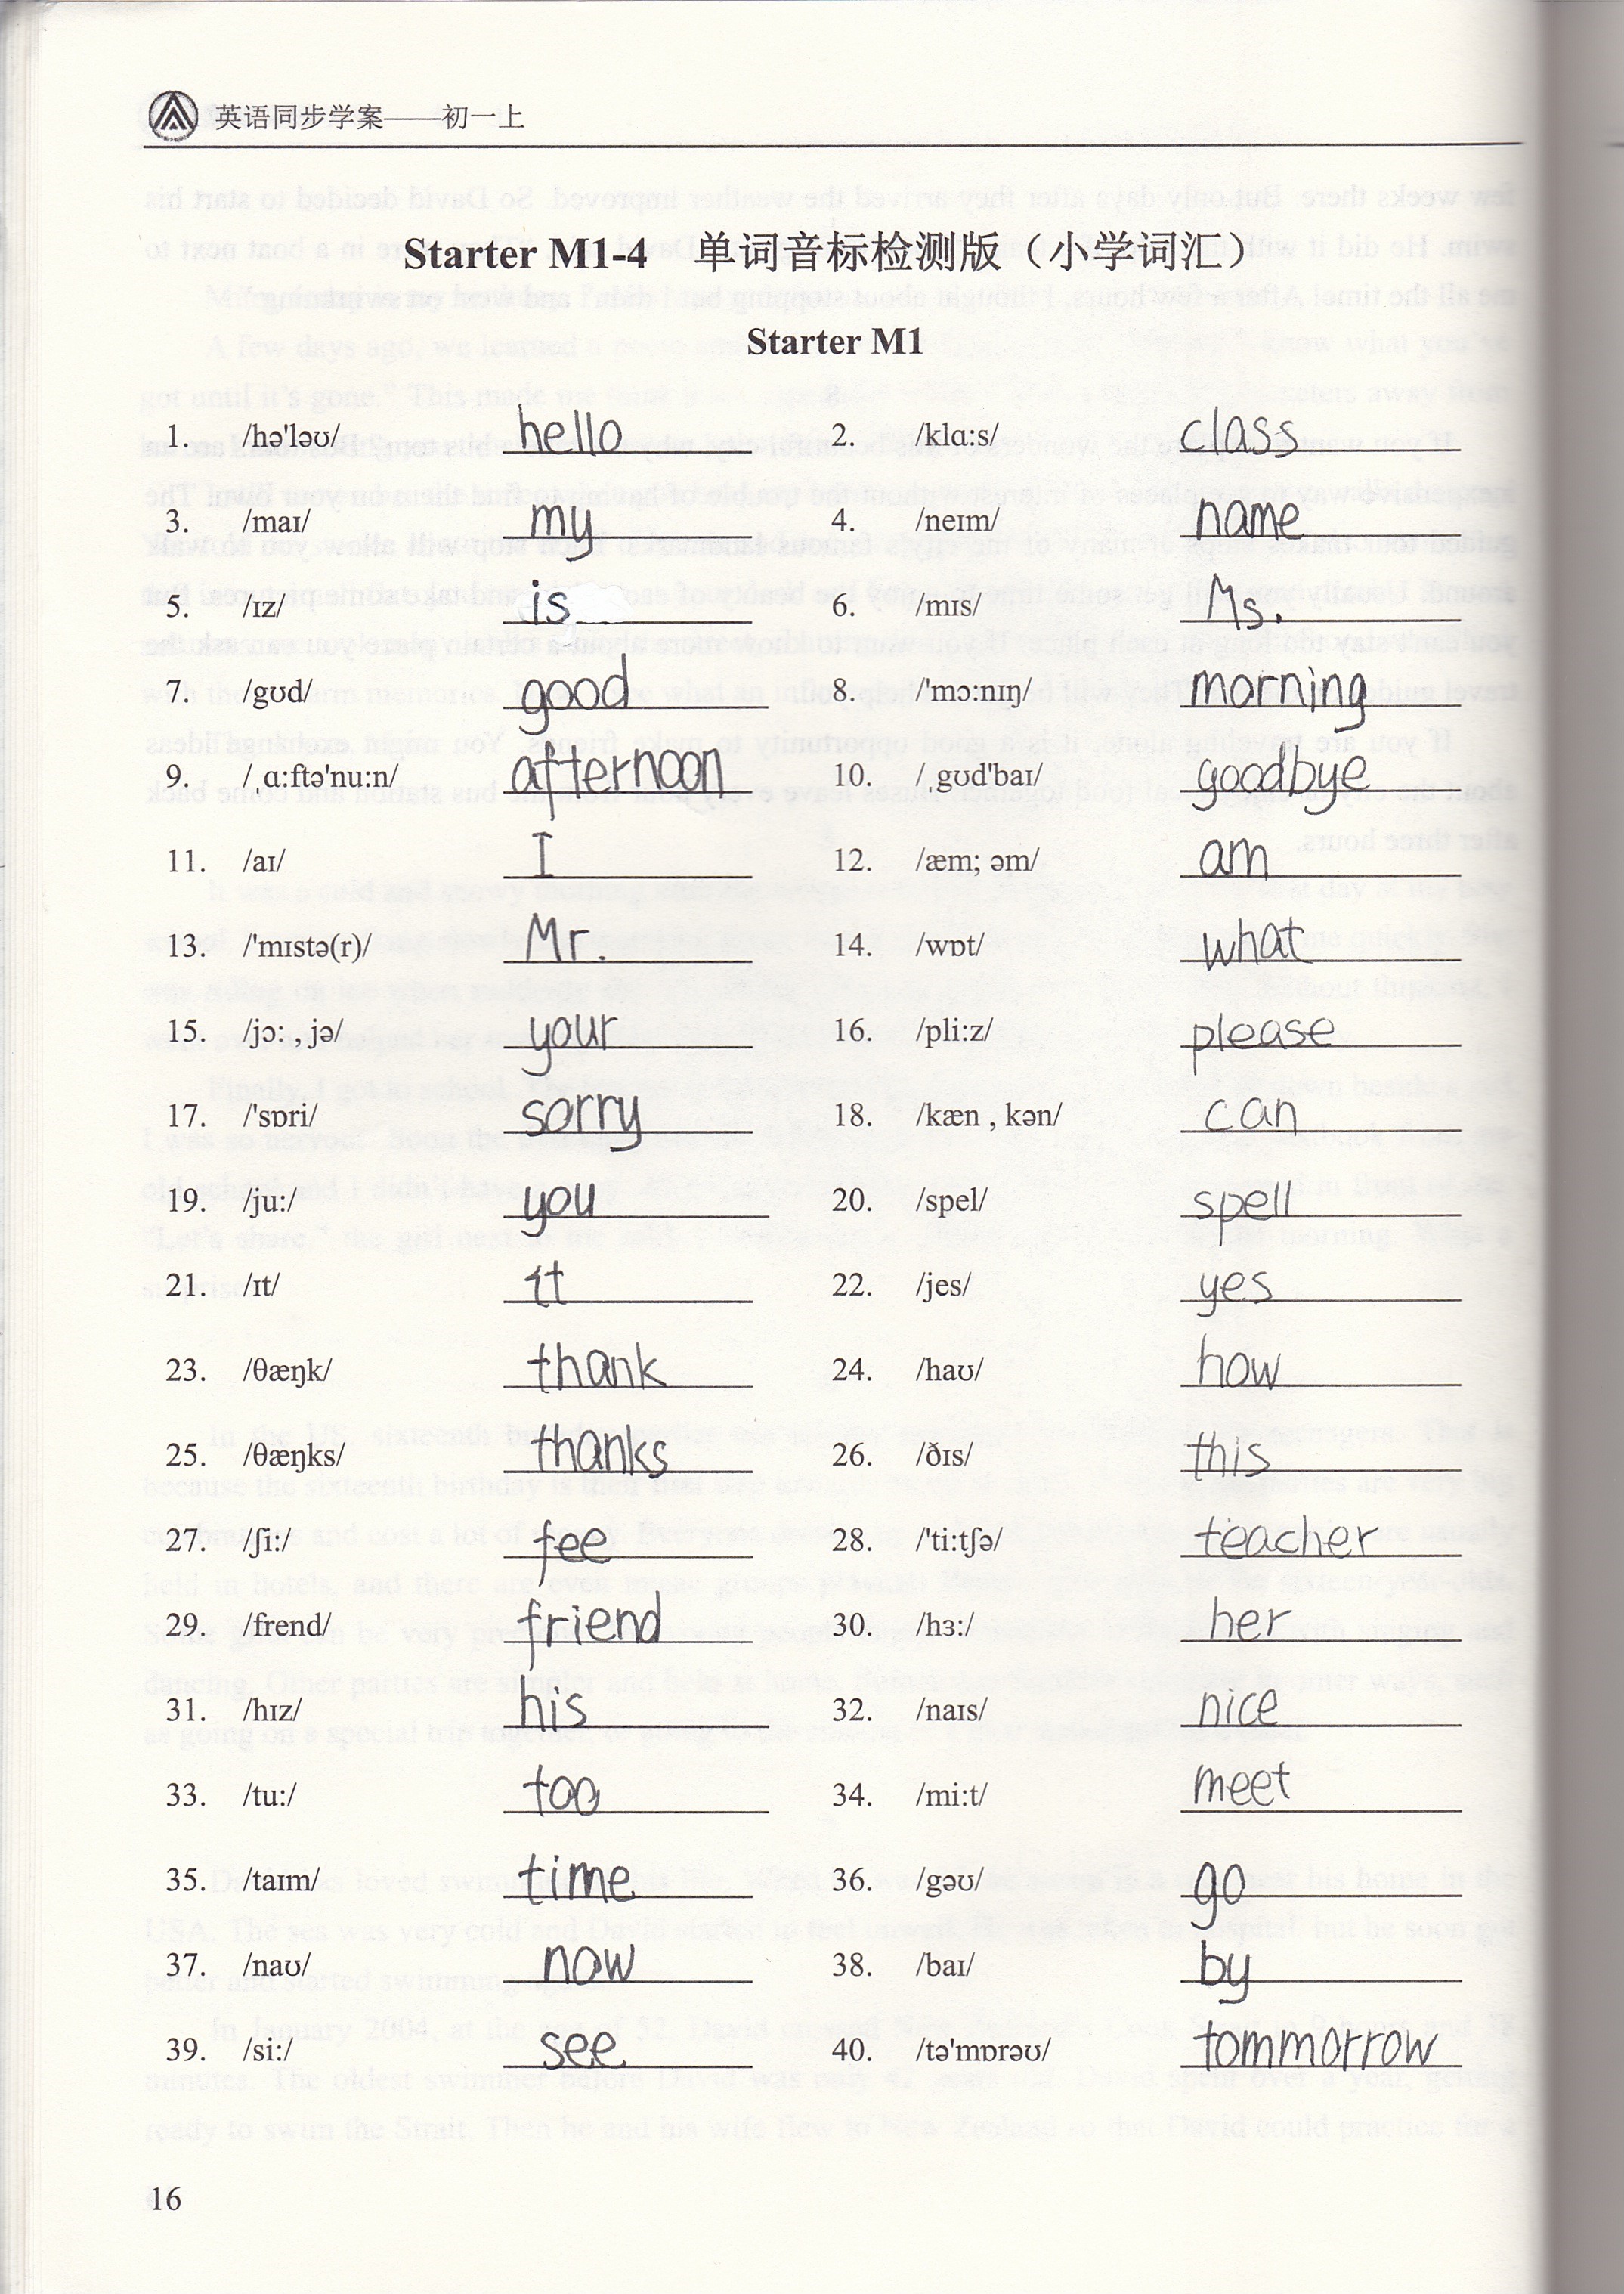 英语同步学案——初一上
Starter M1-4 单词音标检测版（小学词汇）
Starter M1
1. /hə'ləʊ/ hello 2. /klɑ:s/ class
3. /maɪ/ my 4. /neɪm/ name
5. /ɪz/ is 6. /mɪs/ Ms.
7. /gʊd/ good 8. /'mɔ:nɪŋ/ morning
9. /ˌɑ:ftə'nu:n/ afternoon 10. /ˌgʊd'baɪ/ goodbye
11. /aɪ/ I 12. /æm; əm/ am
13. /'mɪstə(r)/ Mr. 14. /wɒt/ what
15. /jɔ: , jə/ your 16. /pli:z/ please
17. /'sɒri/ sorry 18. /kæn , kən/ can
19. /ju:/ you 20. /spel/ spell
21. /ɪt/ it 22. /jes/ yes
23. /θæŋk/ thank 24. /haʊ/ how
25. /θæŋks/ thanks 26. /ðɪs/ this
27. /ʃi:/ fee 28. /'ti:tʃə/ teacher
29. /frend/ friend 30. /hɜ:/ her
31. /hɪz/ his 32. /naɪs/ nice
33. /tu:/ too 34. /mi:t/ meet
35. /taɪm/ time 36. /gəʊ/ go
37. /naʊ/ now 38. /baɪ/ by
39. /si:/ see 40. /tə'mɒrəʊ/ tommorrow
16